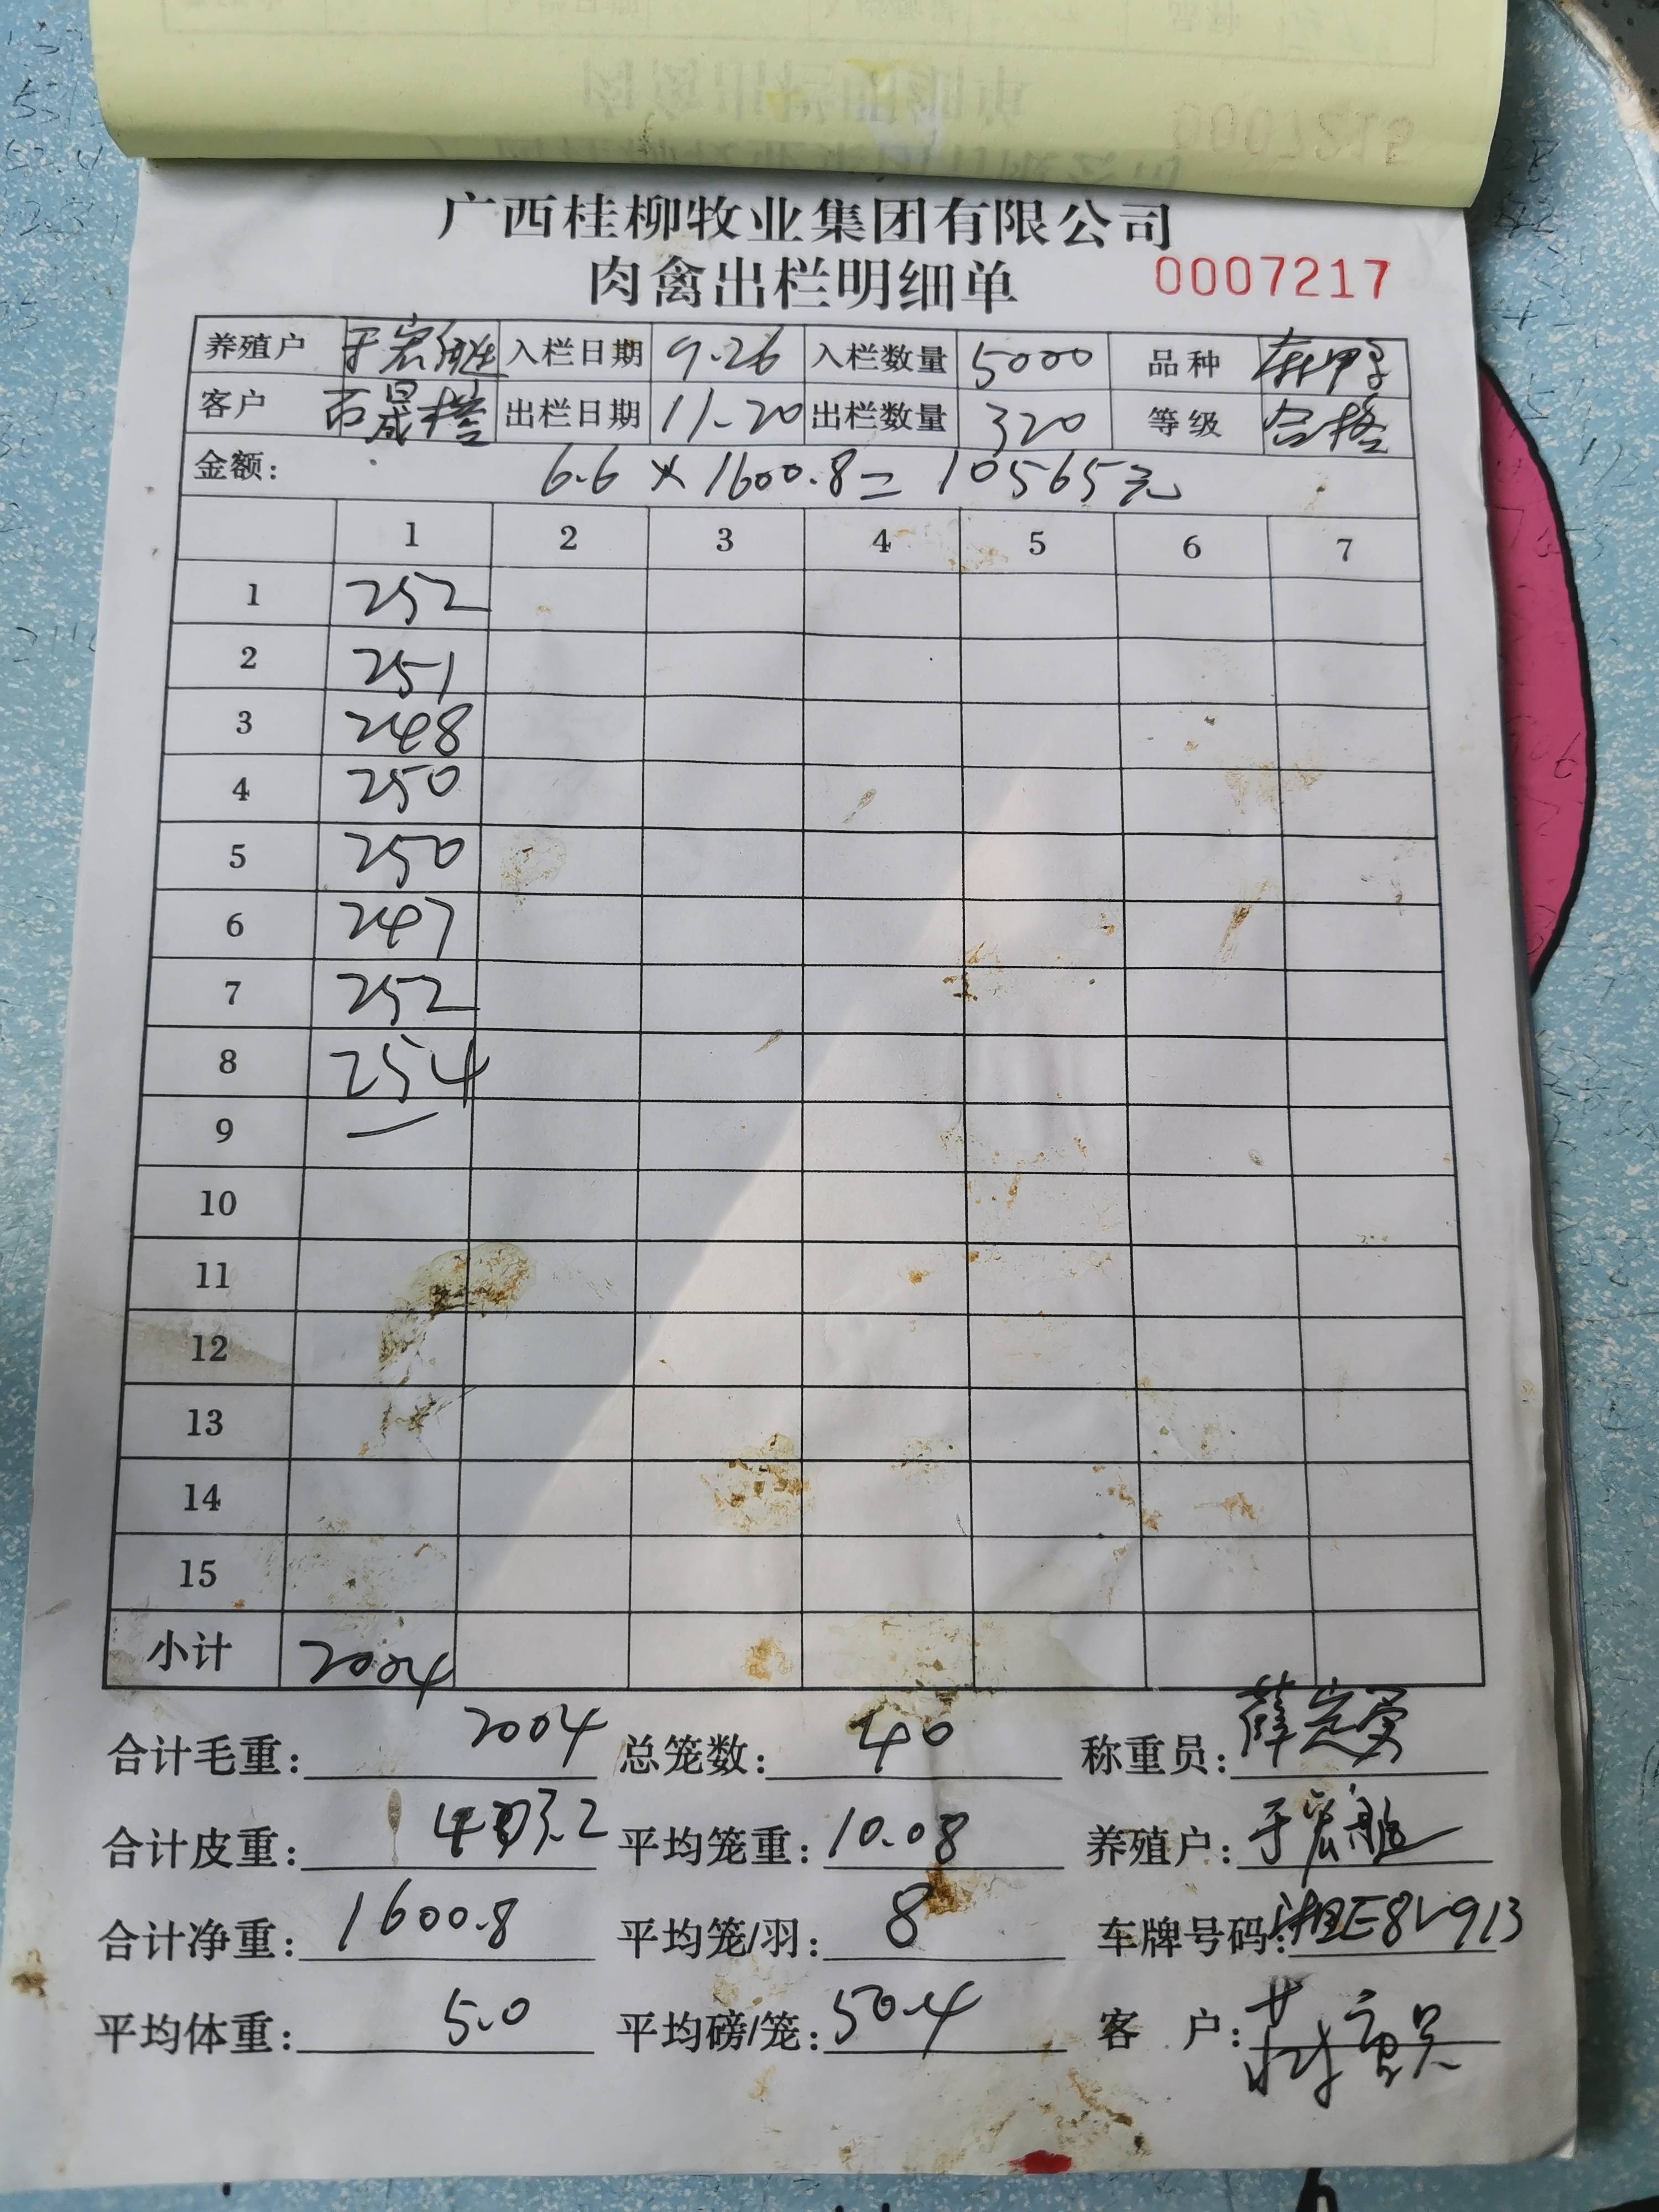 广西桂柳牧业集团有限公司
肉禽出栏明细单 0007217
养殖户 于宏胜 入栏日期 9.26 入栏数量 5000 品种
客户 出栏日期 11.20 出栏数量 320 等级 合格
金额: 6.6 × 1600.8 = 10565元
1 2 3 4 5 6 7
1 252
2 251
3 248
4 250
5 250
6 247
7 252
8 254
9
10
11
12
13
14
15
小计 2004
合计毛重: 2004 总笼数: 40 称重员:
合计皮重: 403.2 平均笼重: 10.08 养殖户: 于宏胜
合计净重: 1600.8 平均笼/羽: 8 车牌号码: 湘E8V913
平均体重: 5.0 平均磅/笼: 50.4 客 户: